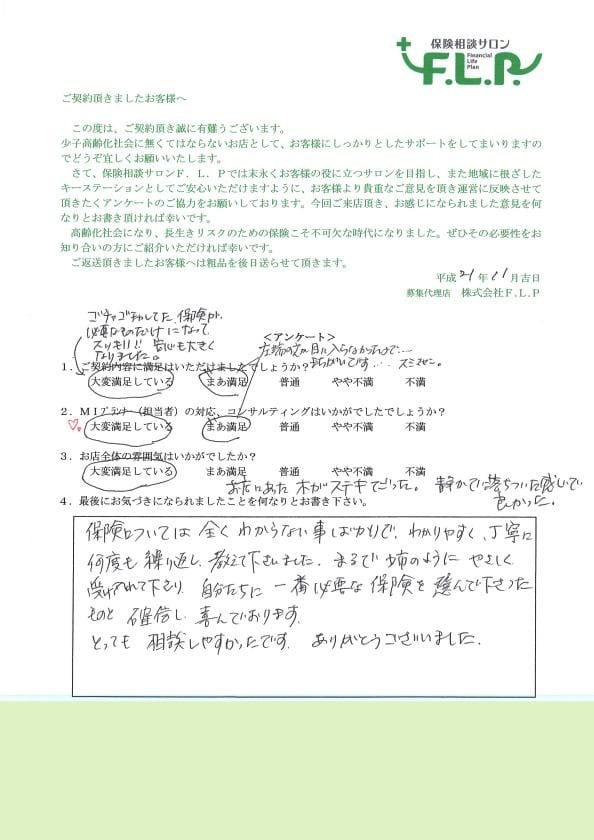 保険相談サロン
F.L.P.
Financial
Life
Plan
ご契約頂きましたお客様へ
この度は、ご契約頂き誠に有難うございます。
少子高齢化社会に無くてはならないお店として、お客様にしっかりとしたサポートをしてまいりますの
でどうぞ宜しくお願いいたします。
さて、保険相談サロンＦ．Ｌ．Ｐでは末永くお客様の役に立つサロンを目指し、また地域に根ざした
キーステーションとしてご安心いただけますように、お客様より貴重なご意見を頂き運営に反映させて
頂きたくアンケートのご協力をお願いしております。今回ご来店頂き、お感じになられました意見を何
なりとお書き頂ければ幸いです。
高齢化社会になり、長生きリスクのための保険こそ不可欠な時代になりました。ぜひその必要性をお
知り合いの方にご紹介いただければ幸いです。
ご返送頂きましたお客様へは粗品を後日送らせて頂きます。
平成 21 年 11 月吉日
募集代理店　株式会社Ｆ.Ｌ.Ｐ
ゴチャゴチャしてた保険が、
必要なものだけになって
スッキリ!!! 安心も大きく
なりました。
＜アンケート＞
左端の文が目に入らなかったので…
まちがいです… スミマセン。
１．ご契約内容に満足はいただけましたでしょうか？
大変満足している　まあ満足　普通　やや不満　不満
２．ＭＩプランナー（担当者）の対応、コンサルティングはいかがでしたでしょうか？
大変満足している　まあ満足　普通　やや不満　不満
３．お店全体の雰囲気はいかがでしたか？
大変満足している　まあ満足　普通　やや不満　不満
お店にあった 木がステキでした。 静かで落ちついた感じで
良かった。
４．最後にお気づきになられましたことを何なりとお書き下さい。
保険については 全く わからない事ばかりで、わかりやすく、丁寧に
何度も 繰り返し 教えて下さいました。 まるで 姉のように やさしく
受け入れて下さり 自分たちに 一番必要な 保険を 選んで下さった
ものと 確信し 喜んでおります。
とっても 相談しやすかったです。 ありがとうございました。